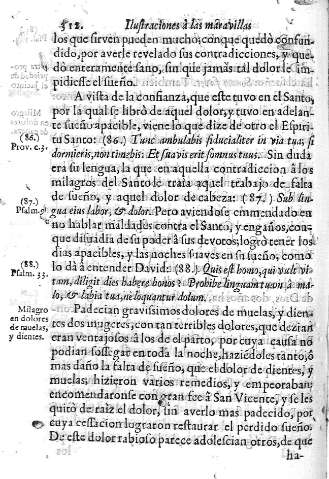 512. Ilustraciones à las maravillas
los que sirven pueden mucho; con que quedò confun-
dido, por averle revelado sus contradicciones, y que-
dò enteramente sano, sin que jamàs tal dolor le im-
pidiesse el sueño.
A vista de la confianza, que este tuvo en el Santo,
por la qual se librò de aquel dolor, y tuvo en adelan-
te sueño apacible, viene lo que dize de otro el Espiri-
(86.)
Prov. c. 3.
tu Santo: (86.) Tunc ambulabis fiducialiter in via tua, si
dormieris, non timebis: Et suavis erit somnus tuus. Sin duda
era su lengua, la que en aquella contradiccion à los
milagros del Santo le traìa aquel trabajo de falta
(87.)
Psalm. 9.
de sueño, y aquel dolor de cabeza: (87.) Sub lin-
gua eius labor, & dolor. Pero aviendose emmendado en
no hablar maldades contra el Santo, y engaños, con-
que disuadia de su poder à sus devotos; logrò tener los
dias apacibles, y las noches suaves en su sueño, como
(88.)
Psalm. 33.
lo dà à entender David: (88.) Quis est homo, qui vult vi-
tam, diligit dies habere bonos? Prohibe linguam tuam à ma-
lo, & labia tua, ne loquantur dolum.
Milagro
en dolores
de muelas,
y dientes.
Padecian gravissimos dolores de muelas, y dien-
tes dos mugeres, con tan terribles dolores, que dezian
eran ventajosos à los de el parto, por cuya causa no
podian sossegar en toda la noche, haziendoles tanto, ò
mas daño la falta de sueño, que el dolor de dientes, y
muelas; hizieron varios remedios, y empeoraban;
encomendaronse con gran fee à San Vicente, y se les
quitò de raìz el dolor, sin averlo mas padecido, por
cuya cessacion lograron restaurar el perdido sueño.
De este dolor rabioso parece adolescian otros, de que
ha-